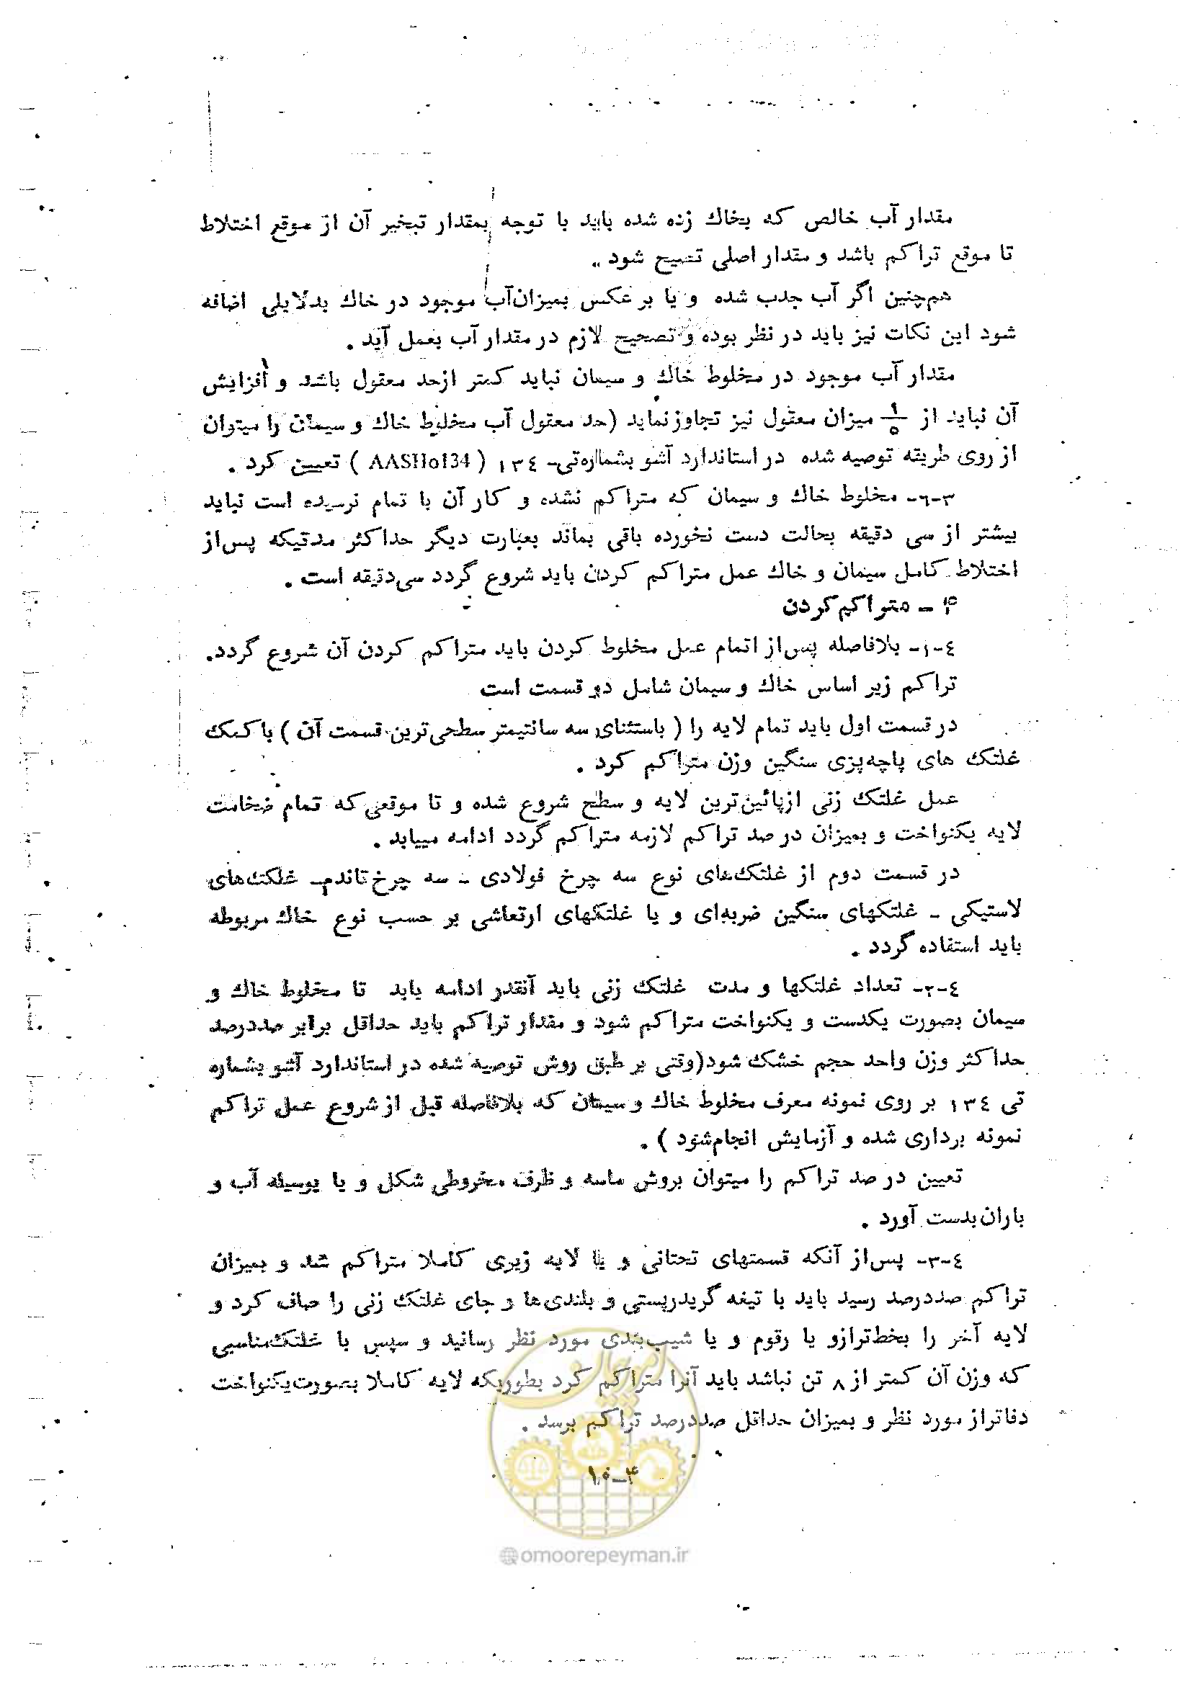 مقدار آب خالص که بخاك زده شده باید با توجه بمقدار تبخیر آن از موقع اختلاط
تا موقع تراکم باشد و مقدار اصلی تصیح شود .
همچنین اگر آب جذب شده و یا بر عکس بمیزان آب موجود در خاك بدلایلی اضافه
شود این نکات نیز باید در نظر بوده و تصحیح لازم در مقدار آب بعمل آید .
مقدار آب موجود در مخلوط خاك و سیمان نباید کمتر از حد معقول باشد و افزایش
آن نباید از ۱/۵ میزان معقول نیز تجاوز نماید (حد معقول آب مخلوط خاك و سیمان را میتوان
از روی طریقه توصیه شده در استاندارد آشو بشماره تی- ۱۳٤ ( AASHo134 ) تعیین کرد .
۳-٦- مخلوط خاك و سیمان که متراکم نشده و کار آن با تمام نرسیده است نباید
بیشتر از سی دقیقه بحالت دست نخورده باقی بماند بعبارت دیگر حداکثر مدتیکه پس از
اختلاط کامل سیمان و خاك عمل متراکم کردن باید شروع گردد سی دقیقه است .
۴ - متراکم کردن
٤-۱- بلافاصله پس از اتمام عمل مخلوط کردن باید متراکم کردن آن شروع گردد.
تراکم زیر اساس خاك و سیمان شامل دو قسمت است
در قسمت اول باید تمام لایه را ( باستثنای سه سانتیمتر سطحی ترین قسمت آن ) با کمك
غلتك های پاچه بزی سنگین وزن متراکم کرد .
عمل غلتك زنی از پائین ترین لایه و سطح شروع شده و تا موقعی که تمام ضخامت
لایه یکنواخت و بمیزان در صد تراکم لازمه متراکم گردد ادامه مییابد .
در قسمت دوم از غلتك های نوع سه چرخ فولادی - سه چرخ تاندم - غلتك های
لاستیکی - غلتکهای سنگین ضربه ای و یا غلتکهای ارتعاشی بر حسب نوع خاك مربوطه
باید استفاده گردد .
٤-۲- تعداد غلتکها و مدت غلتك زنی باید آنقدر ادامه یابد تا مخلوط خاك و
سیمان بصورت یکدست و یکنواخت متراکم شود و مقدار تراکم باید حداقل برابر صددرصد
حداکثر وزن واحد حجم خشك شود(وقتی بر طبق روش توصیه شده در استاندارد آشو بشماره
تی ۱۳٤ بر روی نمونه معرف مخلوط خاك و سیمان که بلافاصله قبل از شروع عمل تراکم
نمونه برداری شده و آزمایش انجام شود ) .
تعیین در صد تراکم را میتوان بروش ماسه و ظرف مخروطی شکل و یا بوسیله آب و
باران بدست آورد .
٤-۳- پس از آنکه قسمتهای تحتانی و یا لایه زیری کاملا متراکم شد و بمیزان
تراکم صددرصد رسید باید با تیغه گریدر پستی و بلندی ها و جای غلتك زنی را صاف کرد و
لایه آخر را بخط ترازو یا رقوم و یا شیب بندی مورد نظر رسانید و سپس با غلتك مناسبی
که وزن آن کمتر از ۸ تن نباشد باید آنرا متراکم کرد بطوریکه لایه کاملا بصورت یکنواخت
دفاتراز مورد نظر و بمیزان حداقل صددرصد تراکم برسد .
امور پیمان
۴-۱۰
@omoorepeyman.ir